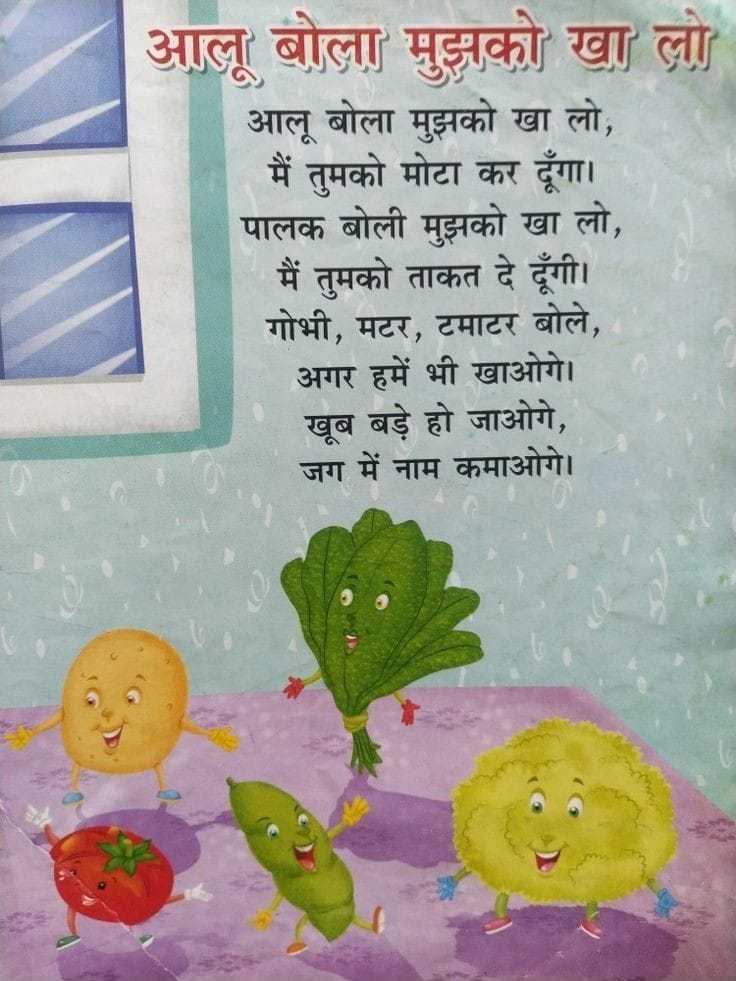 आलू बोला मुझको खा लो
आलू बोला मुझको खा लो,
मैं तुमको मोटा कर दूँगा।
पालक बोली मुझको खा लो,
मैं तुमको ताकत दे दूँगी।
गोभी, मटर, टमाटर बोले,
अगर हमें भी खाओगे।
खूब बड़े हो जाओगे,
जग में नाम कमाओगे।